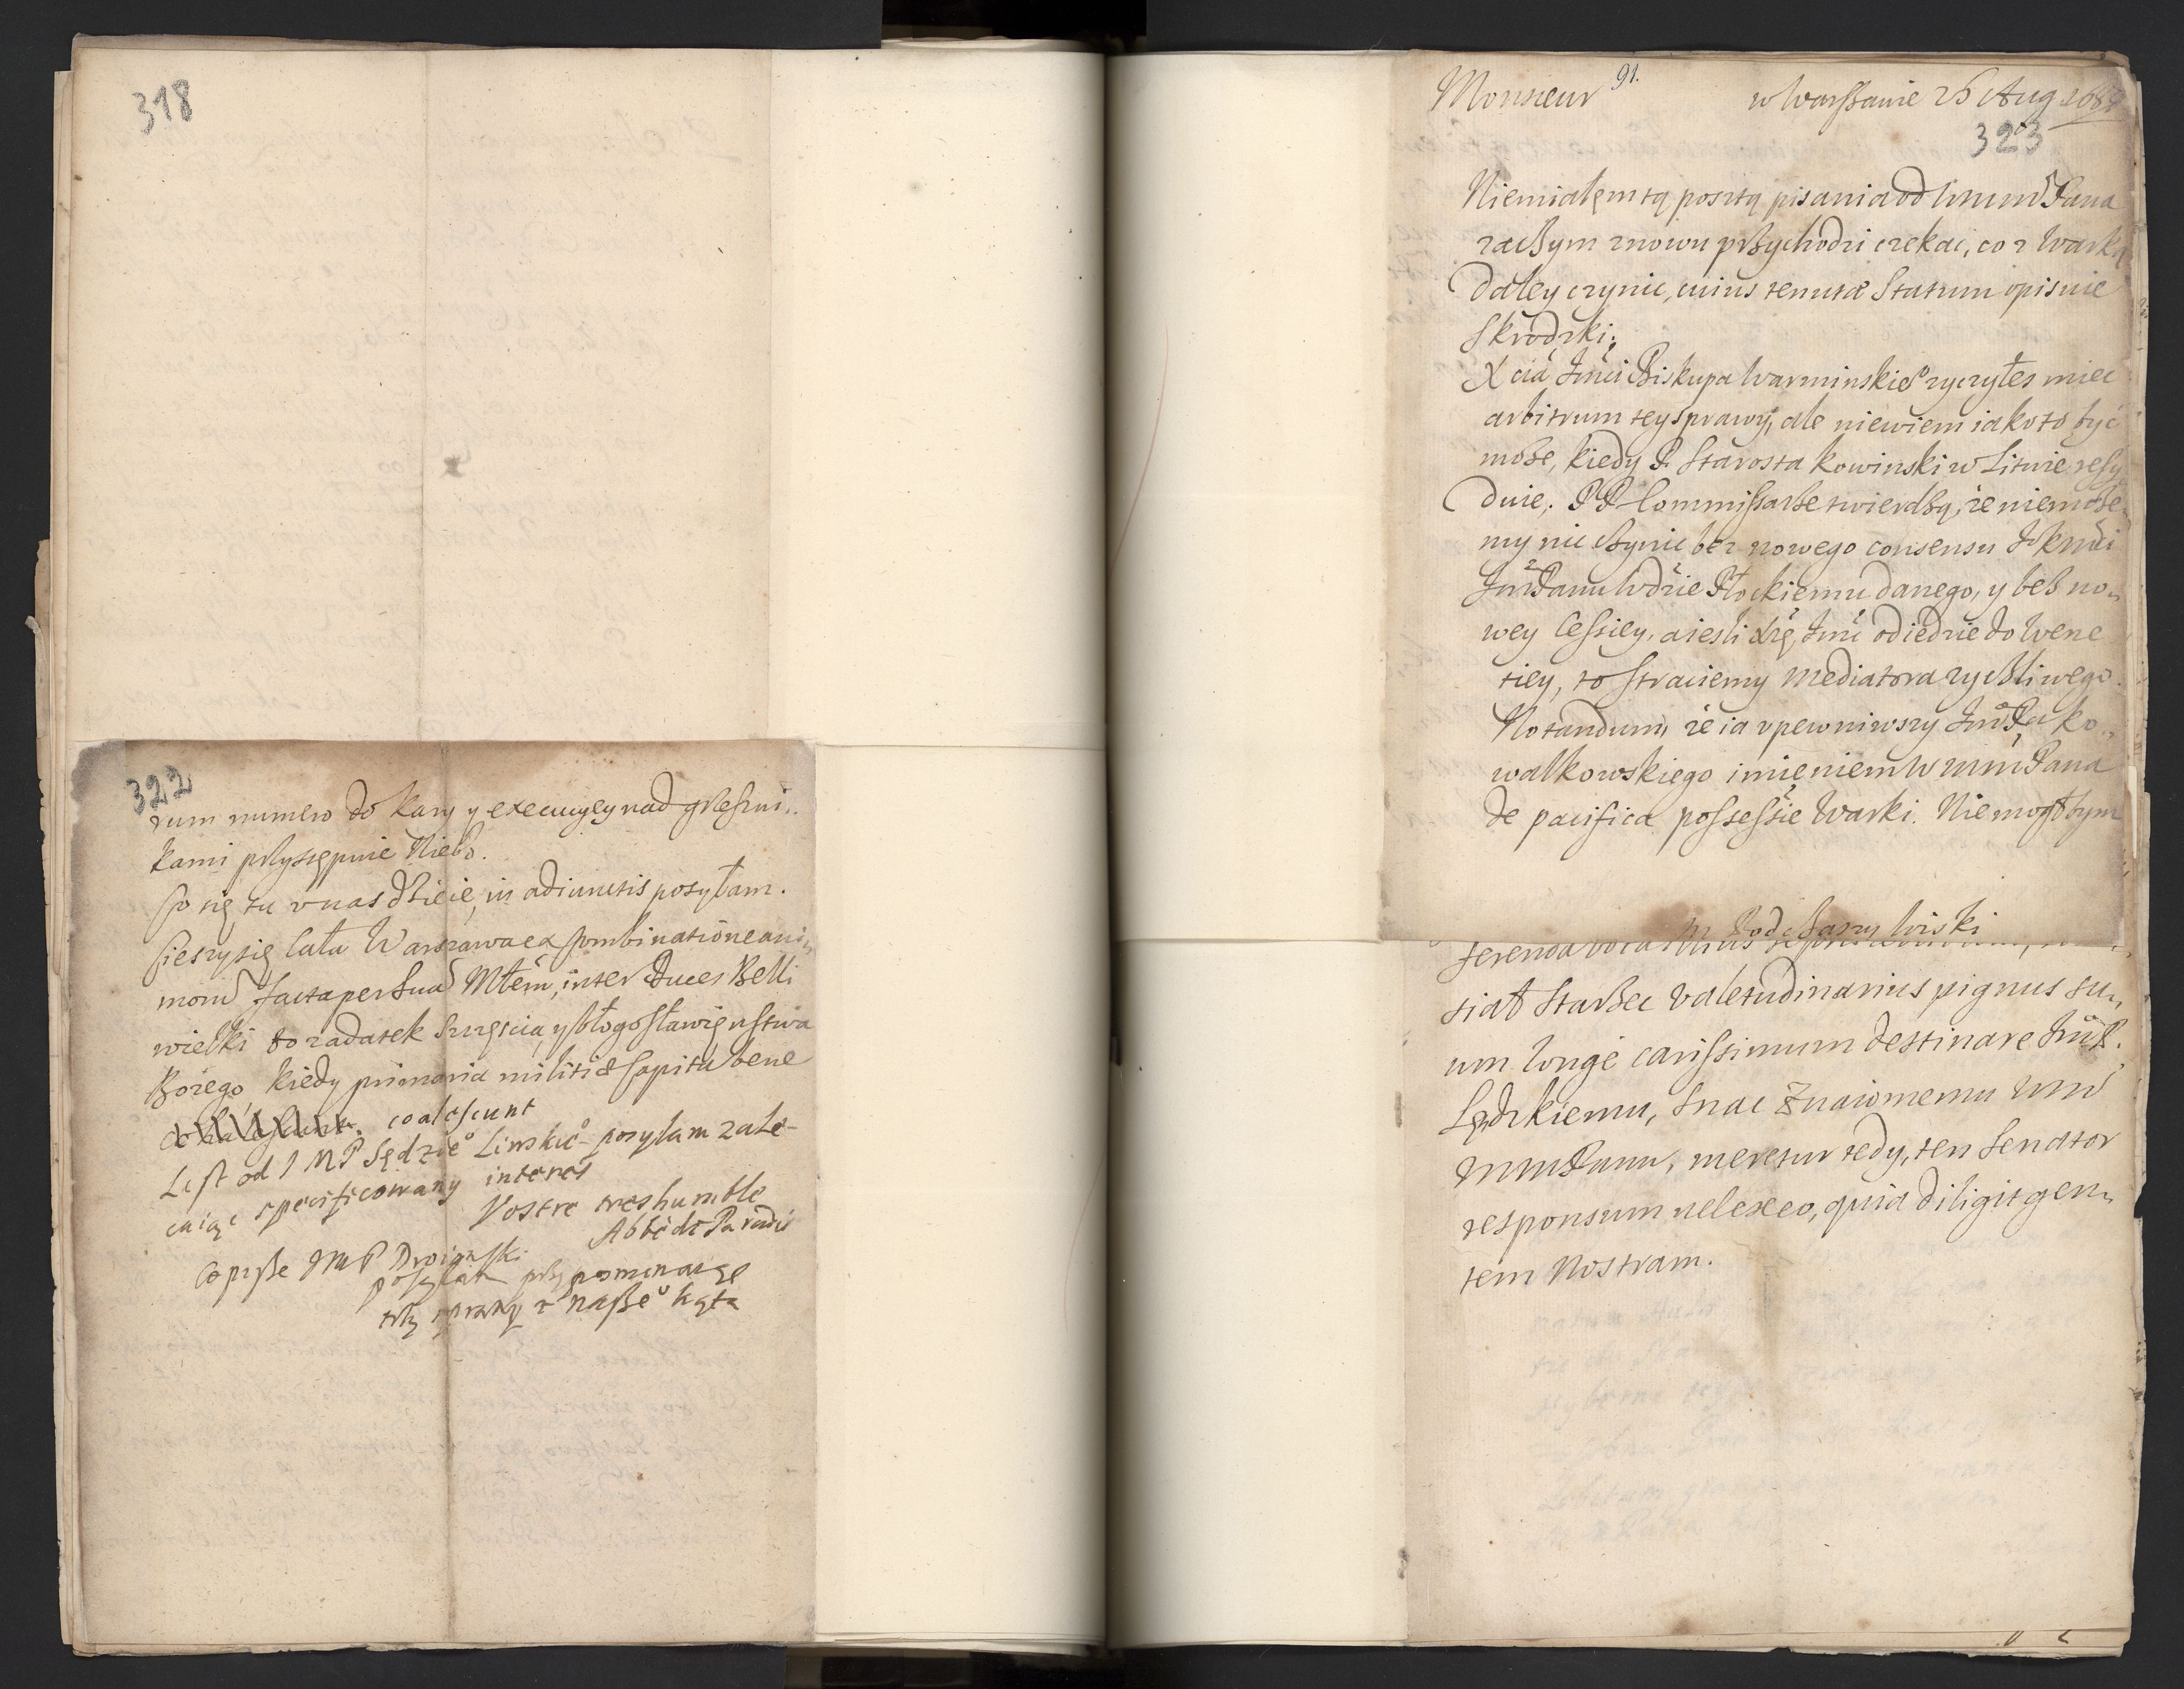 318
322
rum numero do kary y execucyey nad grzeszni„
kami przystępuie Niebo.
Co się tu v nas dzieie, in adiunctis posyłam.
Cieszy się cała Warszawa ex combinatione ani„
mor̃ facta per Suã Mtem̃, inter Duces Belli
wielki to zadatek szczęścia, y błogosławięnstwa
Bozego, kiedy primaria militiæ capita bene
coalescunt
List od J M P Sędzie͠o Linskie͠o posyłam zale-
caiąc specificowany interes
Vostre tres humble
Abbè de Paradis
Co pisze JMP Drwiąnski
posyłam przypominaiąc
tęż sprawę z nasze͠o kąta
Monsieur 91. w Warszawie 26 Aug 168
323
Niemiałęm tą pocztą pisania od Wmm̃ Pana
zaczym znowu przychodzi czekac, co z Warką
daley czynic, cuius tenutæ Statum opisuie
Skrodzki;
X cia Jm̃ci Biskupa Warminskie͠o zyczyłes miec
arbitrum tey sprawy, ale niewiem iako to być
może, kiedy P. Starosta Kowinski w Litwie resy
duie; PP Commissarze twierdzą, że niemoże„
my nic czynic bez nowego consensu JKm̃ci
Jm̃ Panu Wdzie Płockiemu danego, y bez no„
wey Cessiey, a iesli Xżę Jm̃c odiedzie do Wene
tiey, to straciemy Mediatora zyczliwego.
Notandum, że ia vpewniwszy Jm̃ Pa Ko„
walkowskiego imieniem W mm̃ Pana
de pacifica possessie Warki. Niemogłbym
tiał Starzec valetudinarius pignus su„
um longè carissimum destinare Jm̃ P.
Lędzkiemu, snac znaiomemu Wm̃
Mm̃ Panu, meretur tedy, ten Senator
responsum ueleseo, quia diligit gen„
tem Nostram.